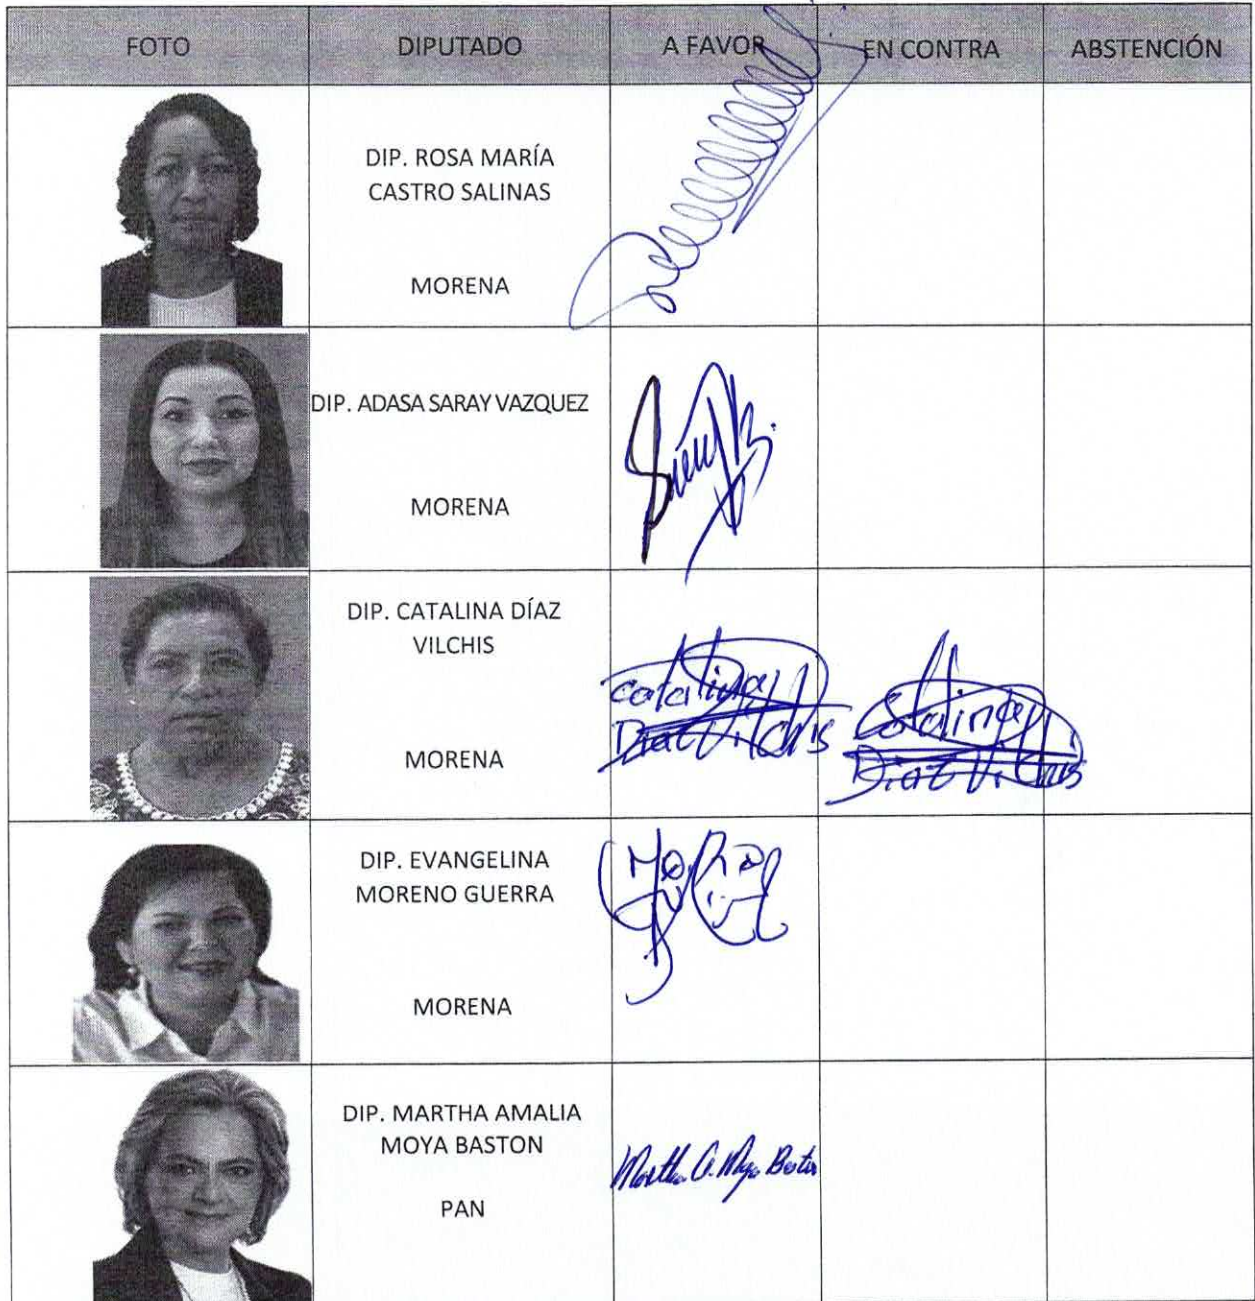 FOTO DIPUTADO A FAVOR EN CONTRA ABSTENCIÓN
DIP. ROSA MARÍA
CASTRO SALINAS
MORENA
DIP. ADASA SARAY VAZQUEZ
MORENA
DIP. CATALINA DÍAZ
VILCHIS
MORENA
Catalina
Diaz Vilchis
Catalina
Diaz Vilchis
DIP. EVANGELINA
MORENO GUERRA
MORENA
DIP. MARTHA AMALIA
MOYA BASTON
PAN
Martha A. Moya Baston